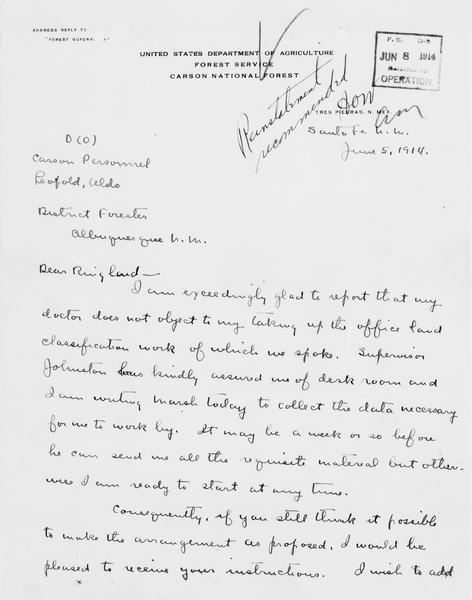 ADDRESS REPLY TO
"FOREST SUPERV
UNITED STATES DEPARTMENT OF AGRICULTURE
FOREST SERVICE
CARSON NATIONAL FOREST
Reinstatement
recommended
F. S. D-3
JUN 8 1914
OPERATION
TRES PIEDRAS, N. MEX.
Santa Fe N.M.
June 5, 1914.
D (O)
Carson Personnel
Leopold, Aldo
District Forester
Albuquerque N.M.
Dear Ringland—
I am exceedingly glad to report that my
doctor does not object to my taking up the office land
classification work of which we spoke. Supervisor
Johnston has kindly assured me of desk room and
I am writing Marsh today to collect the data necessary
for me to work by. It may be a week or so before
he can send me all the requisite material but other-
wise I am ready to start at any time.
Consequently, if you still think it possible
to make the arrangement as proposed, I would be
pleased to receive your instructions. I wish to add